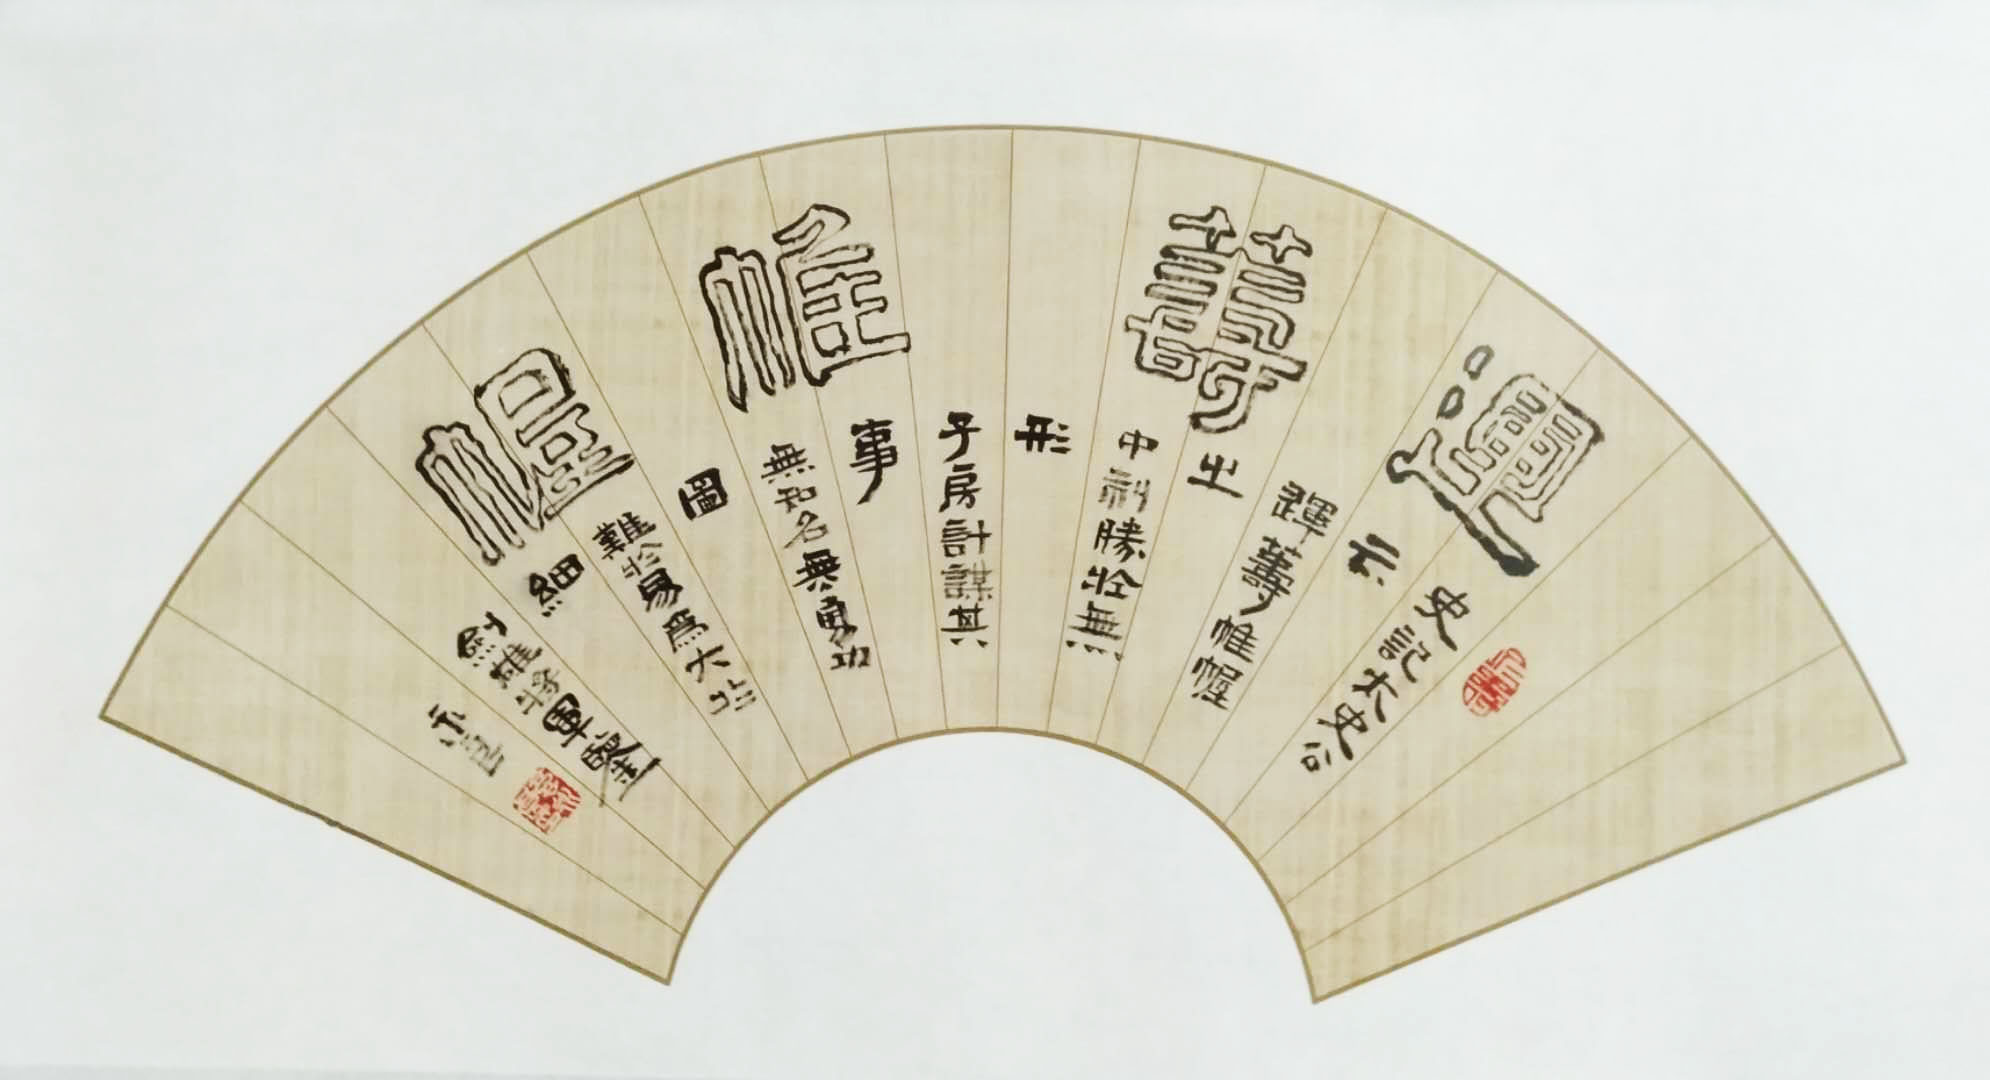 運籌帷幄
史記太史公
云
運籌帷幄
之
中制勝於無
形
子房計謀其
事
無知名無勇功
圖
難於易爲大於
細
將軍